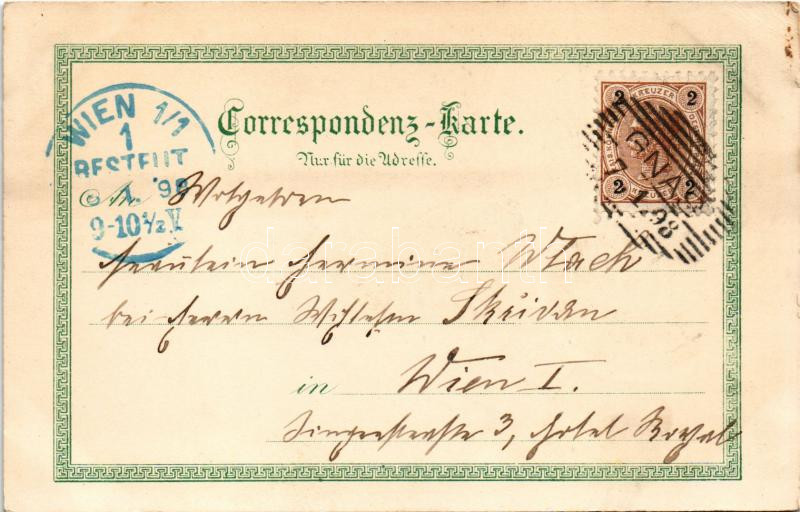 WIEN 1/1
1
BESTELLT
1 98
9-10½V
Correspondenz-Karte.
Nur für die Adresse.
2 KREUZER 2
2 2
GNA
1.98
An Wolgeboren
Fräulein Hermine Wlach
bei Herrn Wilhelm Skrivan
in Wien I.
Singerstrasse 3, Hotel Royal
darabanth